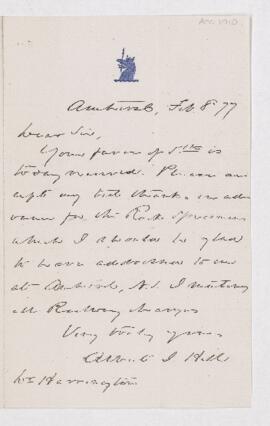 Amherst, Feb. 8 '77
Dear Sir,
Your favor of 5th is
to day received. Please ac-
cept my best thanks in ad-
vance for the Rock Specimens
which I should be glad
to have addressed to me
at Amherst, N.S. I
all Railway charges
Very truly yours,
Albert J Hill
Harrington